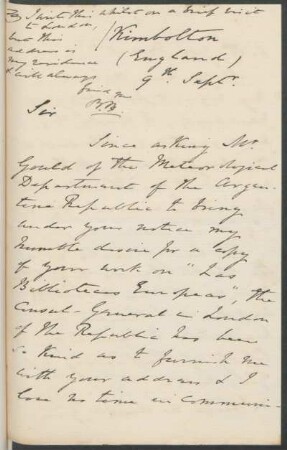 I write this whilst on a brief visit
to London,
but this
address is
my residence
& will always
find me
P.B.
Kimbolton
(England)
9th Septr.
Sir
Since asking Mr.
Gould of the Meteorological
Department of the Argen-
tine Republic to bring
under your notice my
humble desire for a copy
of your work on "Las
Bibliotecas Europeas", the
Consul-General in London
of the Republic has been
so kind as to furnish me
with your address & I
lose no time in communi-